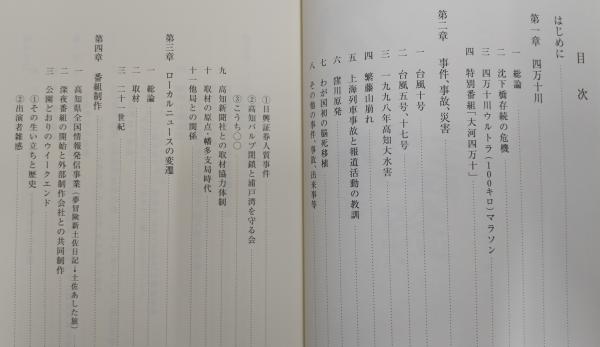 目次
はじめに
第一章 四万十川
一 総論
二 沈下橋存続の危機
三 四万十川ウルトラ（100キロ）マラソン
四 特別番組「大河四万十」
第二章 事件、事故、災害
一 台風十号
二 台風五号、十七号
三 一九九八年高知大水害
四 繁藤山崩れ
五 上海列車事故と報道活動の教訓
六 窪川原発
七 わが国初の脳死移植
八 その他の事件、事故、出来事等
①日興証券人質事件
②高知パルプ閉鎖と浦戸湾を守る会
③こうち〇〇
九 高知新聞社との取材協力体制
十 取材の原点・幡多支局時代
十一 他局との関係
第三章 ローカルニュースの変遷
一 総論
二 取材
三 二十一世紀
第四章 番組制作
一 高知県全国情報発信事業（夢冒険新土佐日記→土佐あした旅）
二 深夜番組の開始と外部制作会社との共同制作
三 公園どおりのウイークエンド
①その生い立ちと歴史
②出演者雑感